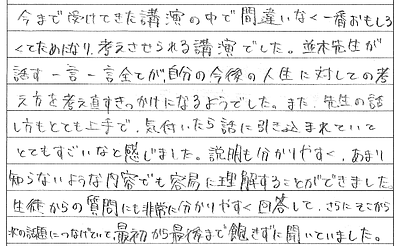 今まで受けてきた講演の中で間違いなく一番おもしろ
くてためになり、考えさせられる講演でした。並木先生が
話す一言一言全てが、自分の今後の人生に対しての考
え方を考え直すきっかけになるようでした。また、先生の話
し方もとても上手で、気付いたら話に引き込まれていて
とてもすごいなと感じました。説明も分かりやすく、あまり
知らないような内容でも容易に理解することができました。
生徒からの質問にも非常に分かりやすく回答して、さらにそこから
次の話題につなげていて最初から最後まで飽きずに聞いていました。